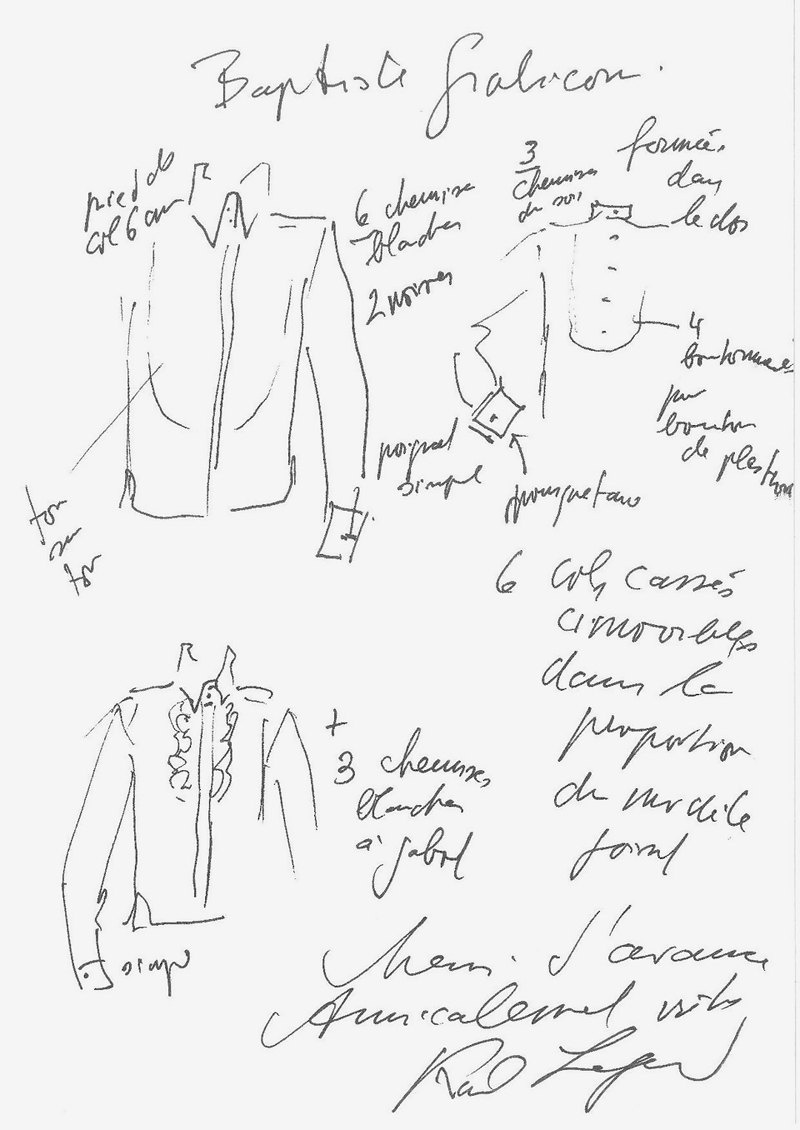 Baptiste Giabiconi.
pied de
col 6 cm
6 chemises
blanches
2 noires
3
chemises
du soir
fermées
dans
le dos
4
boutonnières
pour
bouton
de plastron
poignet
simple
mousquetaire
ton
sur
ton
6 cols cassés
amovibles
dans la
proportion
du modèle
+
3 chemises
blanches
à jabot
simple
Merci d'avance
Amicalement votre
Karl Lagerfeld